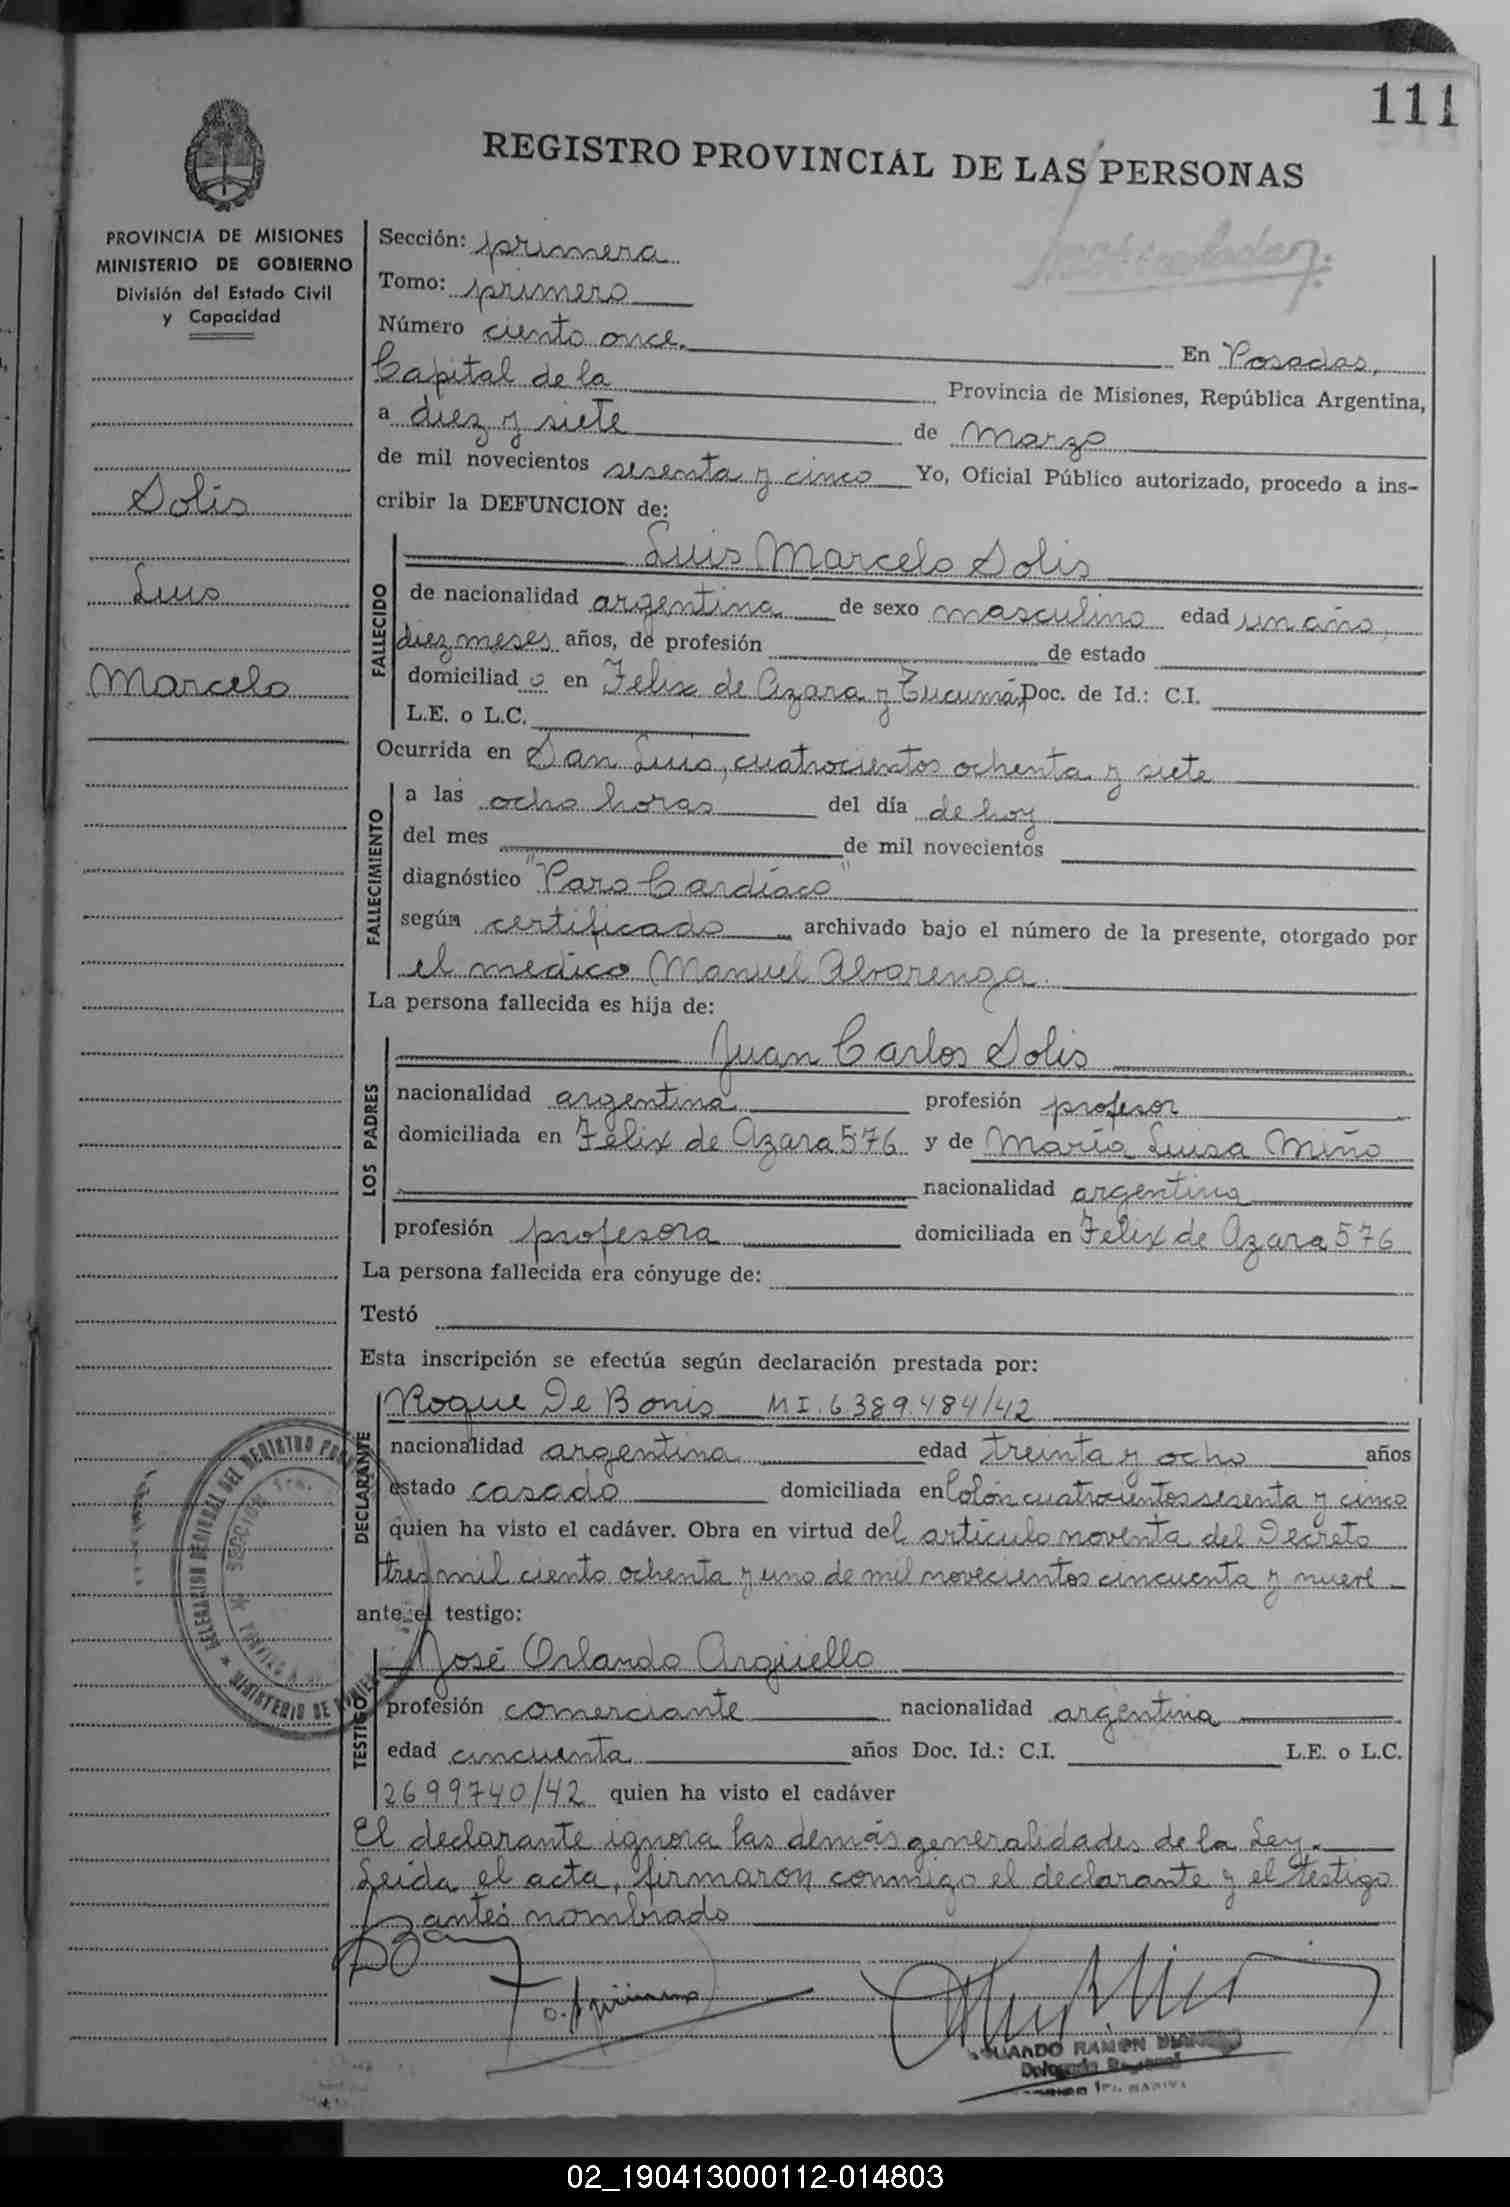 111
REGISTRO PROVINCIAL DE LAS PERSONAS
PROVINCIA DE MISIONES
MINISTERIO DE GOBIERNO
División del Estado Civil
y Capacidad
Solis
Luis
Marcelo
Sección: primera
Tomo: primero
Número ciento once. En Posadas,
Capital de la Provincia de Misiones, República Argentina,
a diez y siete de Marzo
de mil novecientos sesenta y cinco Yo, Oficial Público autorizado, procedo a ins-
cribir la DEFUNCION de:
FALLECIDO
Luis Marcelo Solis
de nacionalidad argentina de sexo masculino edad un año,
diez meses años, de profesión de estado
domiciliad o en Felix de Azara y Tucumán Doc. de Id.: C.I.
L.E. o L.C.
Ocurrida en San Luis, cuatrocientos ochenta y siete
FALLECIMIENTO
a las ocho horas del día de hoy
del mes de mil novecientos
diagnóstico "Paro Cardíaco"
según certificado archivado bajo el número de la presente, otorgado por
el medico Manuel Alvarenga.
La persona fallecida es hija de:
LOS PADRES
Juan Carlos Solis
nacionalidad argentina profesión profesor
domiciliada en Félix de Azara 576 y de María Luisa Miño
nacionalidad argentina
profesión profesora domiciliada en Felix de Azara 576
La persona fallecida era cónyuge de:
Testó
Esta inscripción se efectúa según declaración prestada por:
DECLARANTE
Roque De Bonis MI. 6.389.484/42
nacionalidad argentina edad treinta y ocho años
estado casado domiciliada en Colón cuatrocientos sesenta y cinco
quien ha visto el cadáver. Obra en virtud del artículo noventa del Decreto
tres mil ciento ochenta y uno de mil novecientos cincuenta y nueve
ante el testigo:
TESTIGO
José Orlando Argüello
profesión comerciante nacionalidad argentina
edad cincuenta años Doc. Id.: C.I. L.E. o L.C.
2699740/42 quien ha visto el cadáver
El declarante ignora las demás generalidades de la Ley.
Leída el acta, firmaron conmigo el declarante y el testigo
antes nombrado
RAMON
02_190413000112-014803